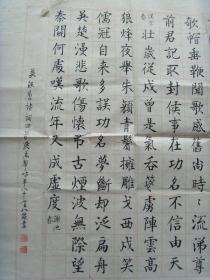 歌帽垂鞭聞歌感舊尚時時流涕尊
前君記取封侯事在功名不信由天
漢宮春
壯歲從戎曾是氣吞殘虜陣雲高
狼烽夜舉朱顏青鬢擁雕戈西戍笑
儒冠自來多誤功名夢斷却泛扁舟
吳楚漫悲歌傷懷弔古煙波無際望
秦關何處嘆流年又成虛度 謝池春